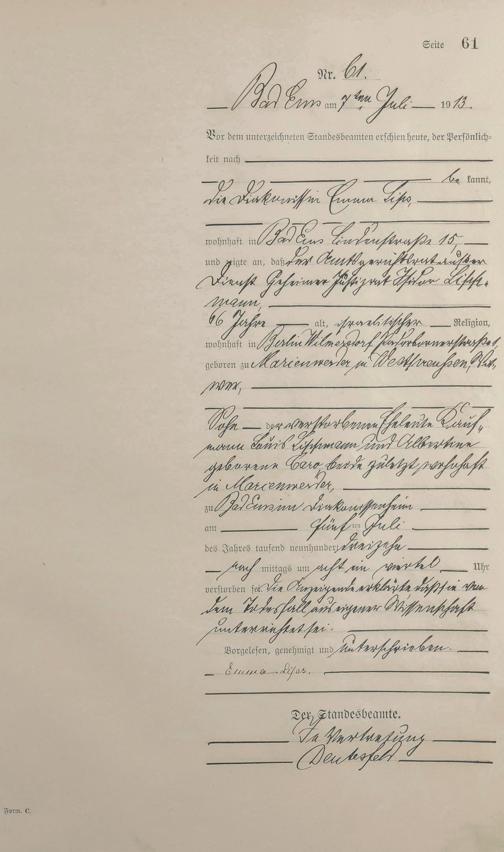 Seite 61
Nr. 61.
Bad Ems am 7ten Juli 1913.
Vor dem unterzeichneten Standesbeamten erschien heute, der Persönlich-
keit nach
be kannt,
die Diakonissin Emma
wohnhaft in Bad Ems Lindenstraße 15,
und zeigte an, daß der Amtsgerichtsrat außer
Dienst Geheimer Justizrat Isidor Lisch-
mann,
66 Jahre alt, israelitischer Religion,
wohnhaft in Berlin Wilmersdorf
geboren zu Marienwerder in Westpreussen, Wit-
wer,
Sohn der verstorbenen Eheleute Kauf-
mann Louis Lischmann und Albertine
geborene Caro, beide zuletzt wohnhaft
in Marienwerder,
zu Bad Ems im Diakonissenheim
am fünften Juli
des Jahres tausend neunhundert dreizehn
nach mittags um acht ein viertel Uhr
verstorben sei. Die Anzeigende erklärte daß sie von
dem Todesfall aus eigener Wissenschaft
unterrichtet sei.
Vorgelesen, genehmigt und unterschrieben.
Emma
Der Standesbeamte.
In Vertretung
Form. C.